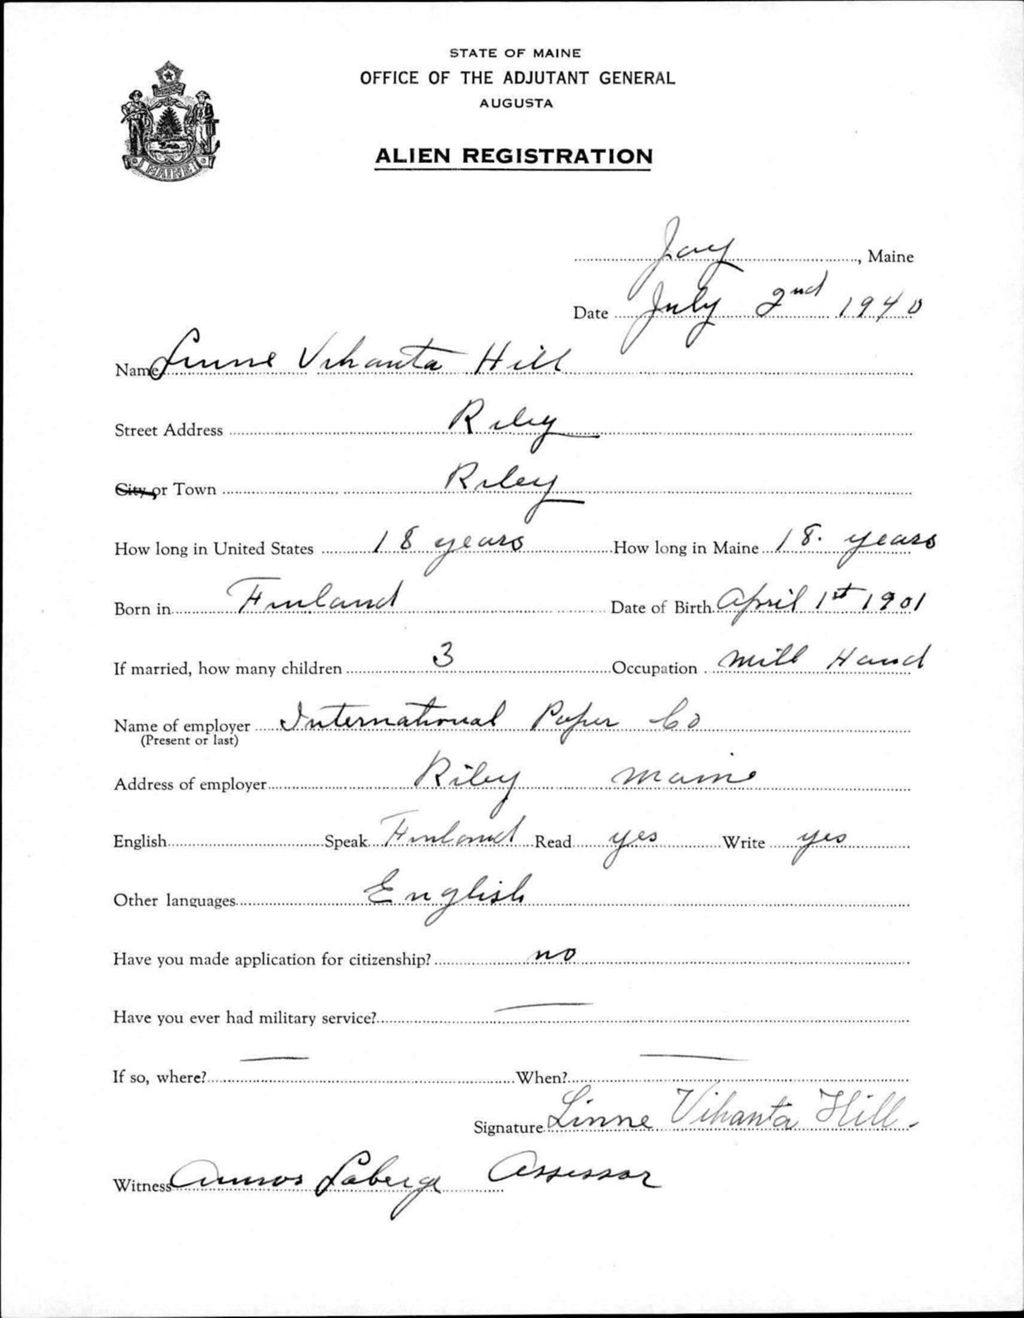 STATE OF MAINE
OFFICE OF THE ADJUTANT GENERAL
AUGUSTA
ALIEN REGISTRATION
MAINE
Jay, Maine
Date July 2nd 1940
Name Linne Vihanta Hill
Street Address Riley
City or Town Riley
How long in United States 18 years How long in Maine 18. years
Born in Finland Date of Birth April 1st 1901
If married, how many children 3 Occupation Mill Hand
Name of employer International Paper Co
(Present or last)
Address of employer Riley Maine
English Speak Finland Read yes Write yes
Other languages English
Have you made application for citizenship? no
Have you ever had military service? —
If so, where? — When? —
Signature Linne Vihanta Hill.
Witness Laberge Assessor